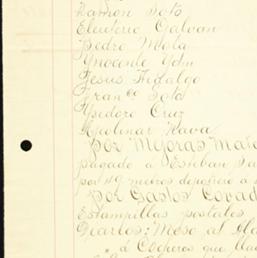 Ramon Soto
Eleuterio Galvan
Pedro Mola
Ynocente
Jesus Hidalgo
Franco Soto
Ysidoro Cruz
Molinar Nava
Por Mejoras Mate
pagado a Esteban
por 49 metros
Por Gastos
Estampillas postales
Diarios: Mesa al
á Cocheros que lle